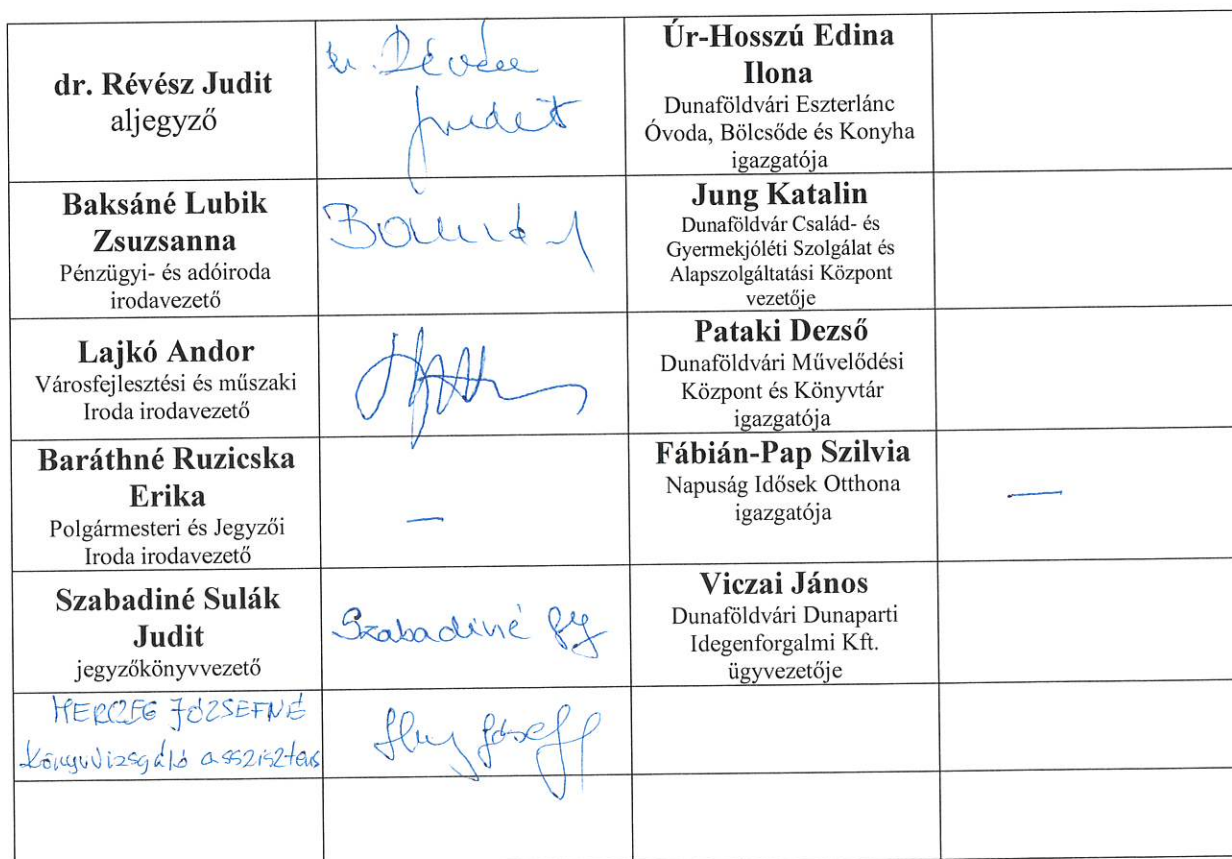 dr. Révész Judit
aljegyző
dr. Révész
Judit
Úr-Hosszú Edina
Ilona
Dunaföldvári Eszterlánc
Óvoda, Bölcsőde és Konyha
igazgatója
Baksáné Lubik
Zsuzsanna
Pénzügyi- és adóiroda
irodavezető
Jung Katalin
Dunaföldvár Család- és
Gyermekjóléti Szolgálat és
Alapszolgáltatási Központ
vezetője
Lajkó Andor
Városfejlesztési és műszaki
Iroda irodavezető
Pataki Dezső
Dunaföldvári Művelődési
Központ és Könyvtár
igazgatója
Baráthné Ruzicska
Erika
Polgármesteri és Jegyzői
Iroda irodavezető
—
Fábián-Pap Szilvia
Napuság Idősek Otthona
igazgatója
—
Szabadiné Sulák
Judit
jegyzőkönyvvezető
Szabadiné
Viczai János
Dunaföldvári Dunaparti
Idegenforgalmi Kft.
ügyvezetője
HERCZEG JÓZSEFNÉ
könyvvizsgáló asszisztens